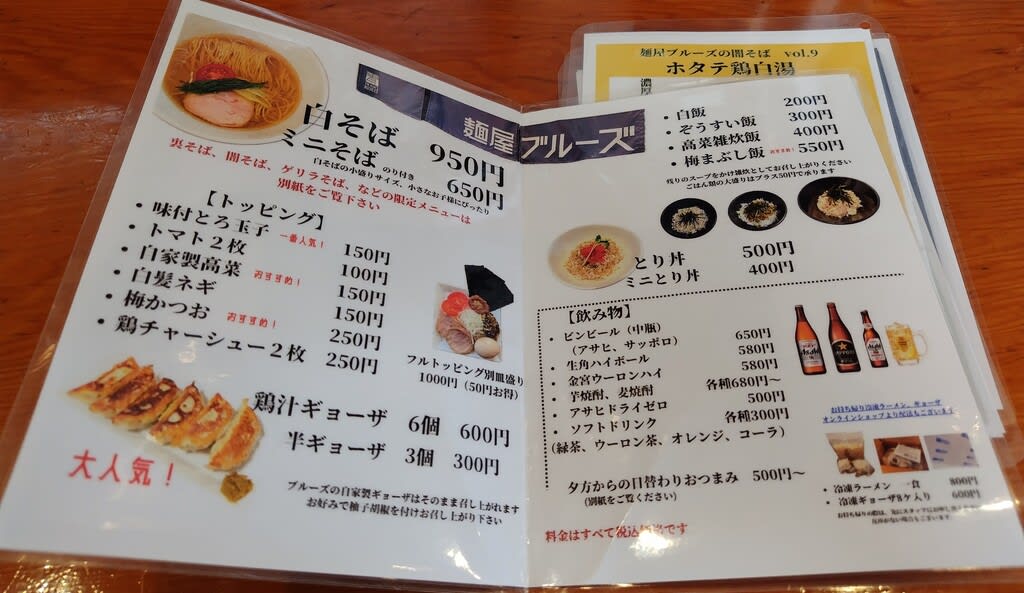 麺屋ブルーズ
白そば 950円
ミニそば のり付き 650円
白そばの小盛りサイズ、小さなお子様にぴったり
裏そば、闇そば、ゲリラそば、などの限定メニューは
別紙をご覧下さい
【トッピング】
・味付とろ玉子 一番人気! 150円
・トマト2枚 100円
・自家製高菜 おすすめ! 150円
・白髪ネギ 150円
・梅かつお おすすめ! 250円
・鶏チャーシュー2枚 250円
フルトッピング別皿盛り
1000円(50円お得)
鶏汁ギョーザ 6個 600円
半ギョーザ 3個 300円
大人気!
ブルーズの自家製ギョーザはそのまま召し上がれます
お好みで柚子胡椒を付けお召し上がり下さい
麺屋ブルーズの闇そば vol.9
ホタテ鶏白湯
濃厚
・白飯 200円
・ぞうすい飯 300円
・高菜雑炊飯 400円
・梅まぶし飯 おすすめ! 550円
残りのスープをかけ雑炊としてお召し上がりください
ごはん類の大盛りはプラス50円で承ります
とり丼 500円
ミニとり丼 400円
【飲み物】
・ビンビール(中瓶) 650円
(アサヒ、サッポロ)
・生角ハイボール 580円
・金宮ウーロンハイ 580円
・芋焼酎、麦焼酎 各種680円〜
・アサヒドライゼロ 500円
・ソフトドリンク 各種300円
(緑茶、ウーロン茶、オレンジ、コーラ)
夕方からの日替わりおつまみ 500円〜
(別紙をご覧ください)
料金はすべて税込価格です
お持ち帰り冷凍ラーメン、ギョーザ
オンラインショップより配送もございます
・冷凍ラーメン 一食 800円
・冷凍ギョーザ8ケ入り 600円